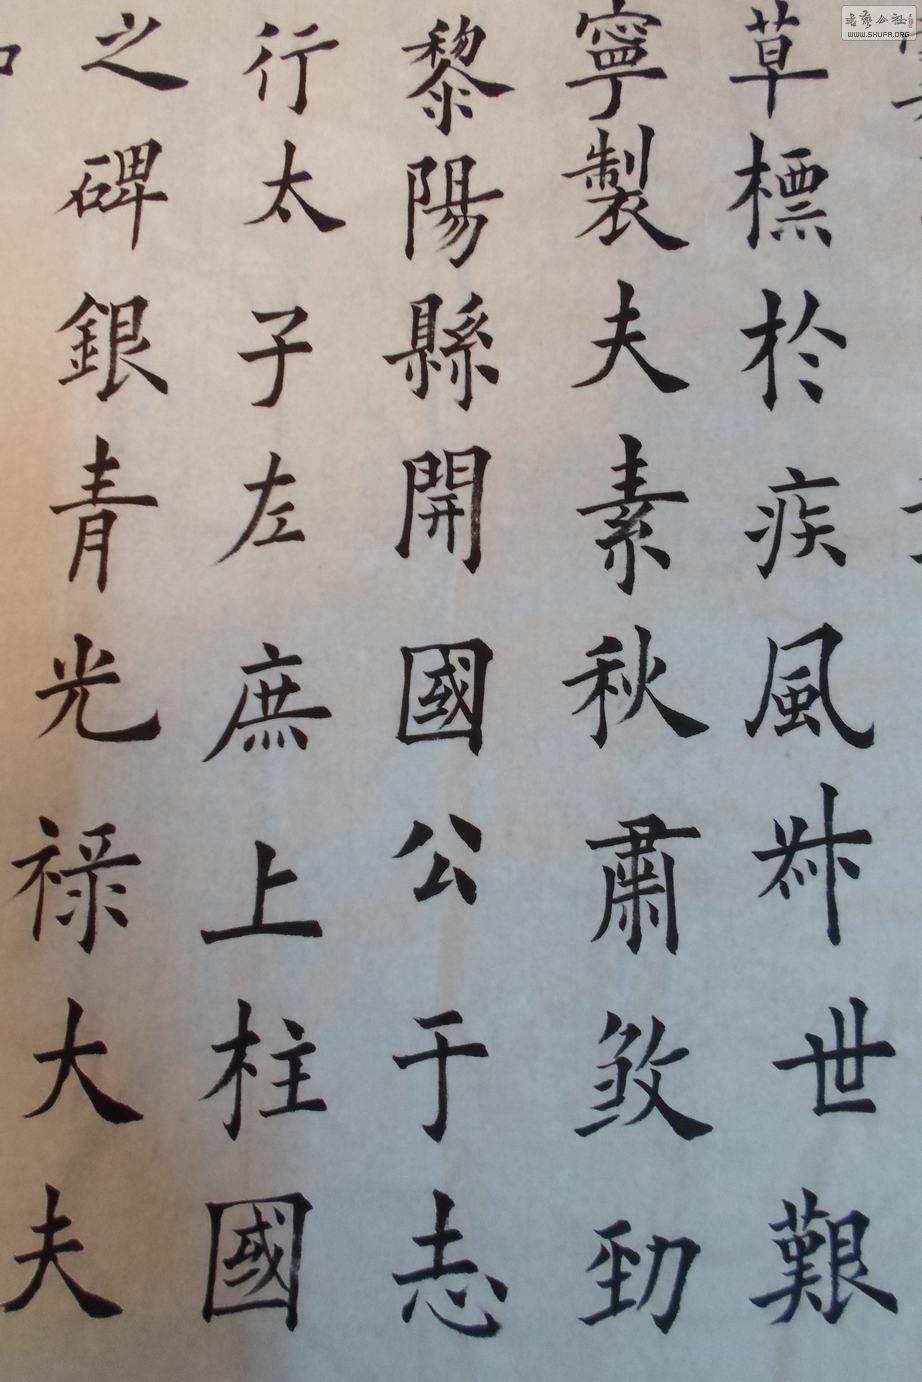 草標於疾風叔世艱
寧製夫素秋肅煞勁
黎陽縣開國公于志
行太子左庶上柱國
之碑銀青光祿大夫
書藝公社
WWW.SHUFA.ORG